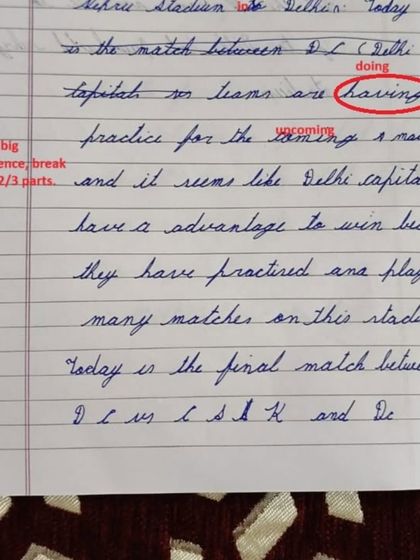 Nehru Stadium in Delhi. Today
is the match between D C (Delhi
doing
Capitals vs teams are having
upcoming
practice for the coming a ma
big
ence, break
2/3 parts.
and it seems like Delhi capita
have a advantage to win be
they have practised and play
many matches on this stadi
Today is the final match betwe
D C vs C S K and Dc